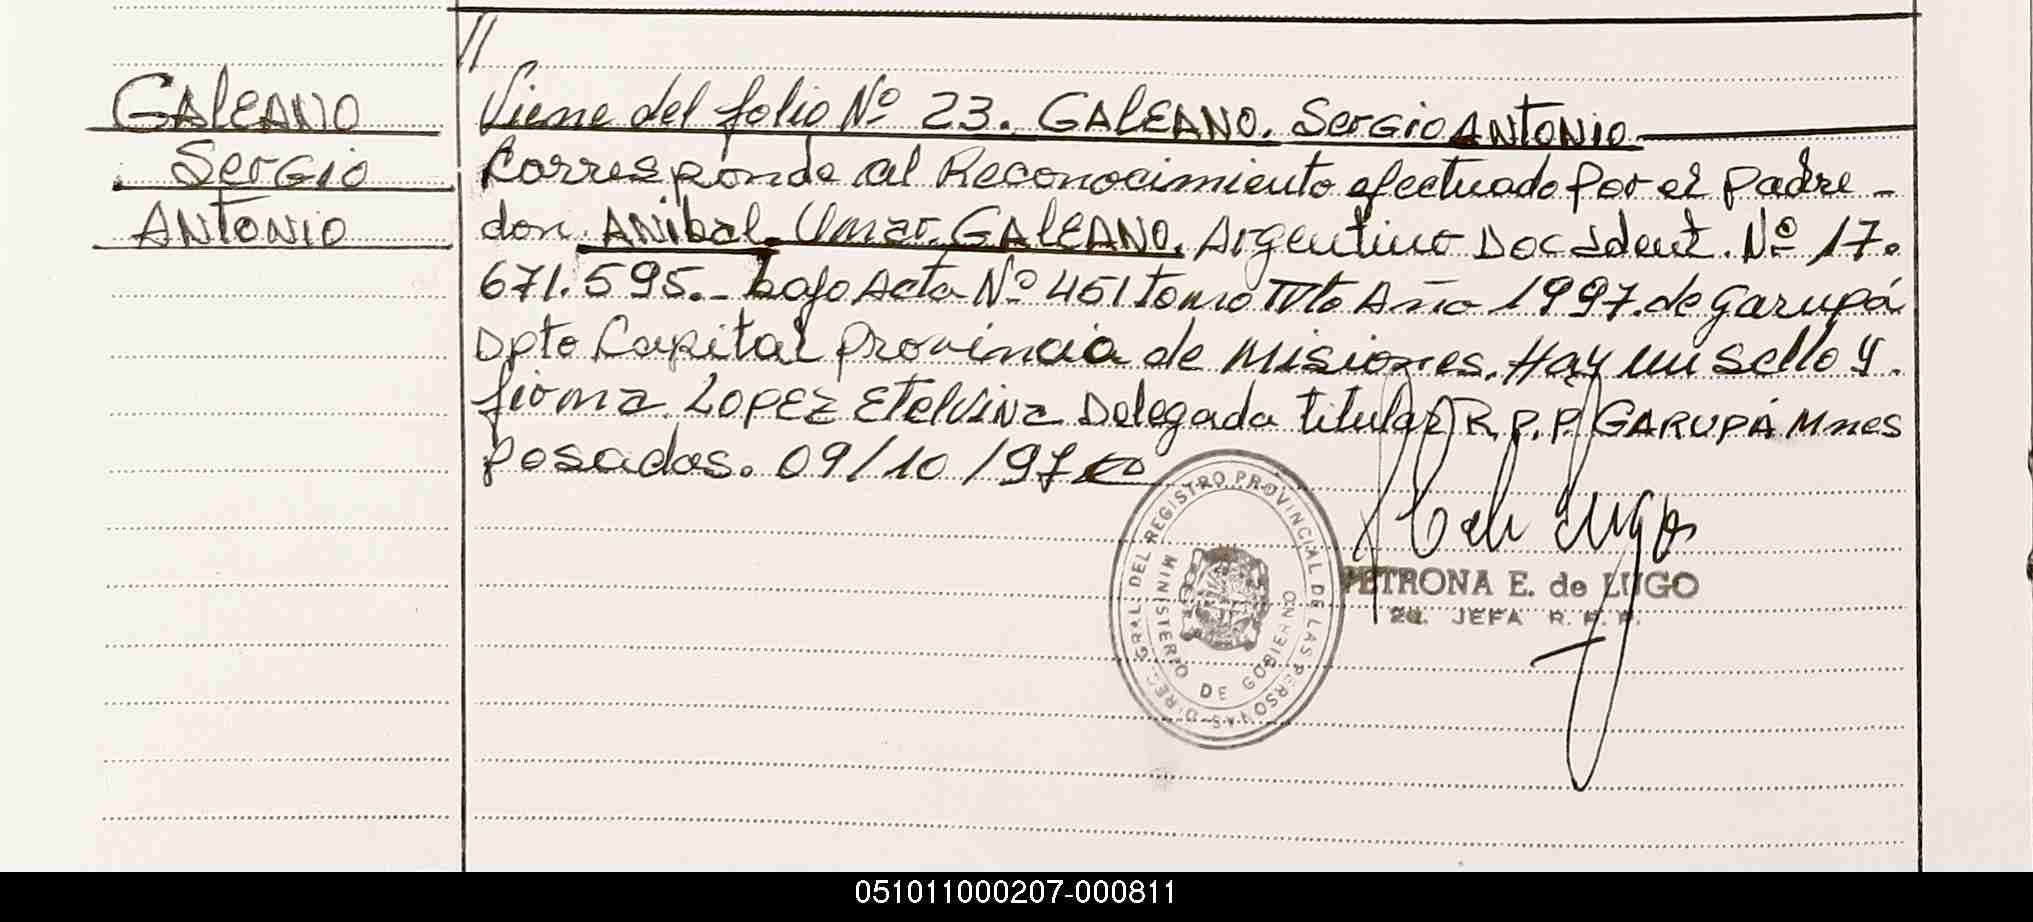 //
GALEANO
Sergio
ANTONIO
Viene del folio Nº 23. GALEANO. Sergio ANTONIO.
Corresponde al Reconocimiento efectuado por el padre -
don. ANibal Omar. GALEANO. Argentino Doc Ident. Nº 17.
671.595.- bajo Acta Nº 451 tomo IVto Año 1997. de Garupá
Dpto Capital provincia de Misiones. Hay un sello y.
firma. LOPEZ Etelvina Delegada titular R.P.P. GARUPÁ Mnes
Posadas. 09/10/97
DIREC. GRAL. DEL REGISTRO PROVINCIAL DE LAS PERSONAS
MINISTERIO DE GOBIERNO
PETRONA E. de LUGO
2da. JEFA R. P. P.
051011000207-000811